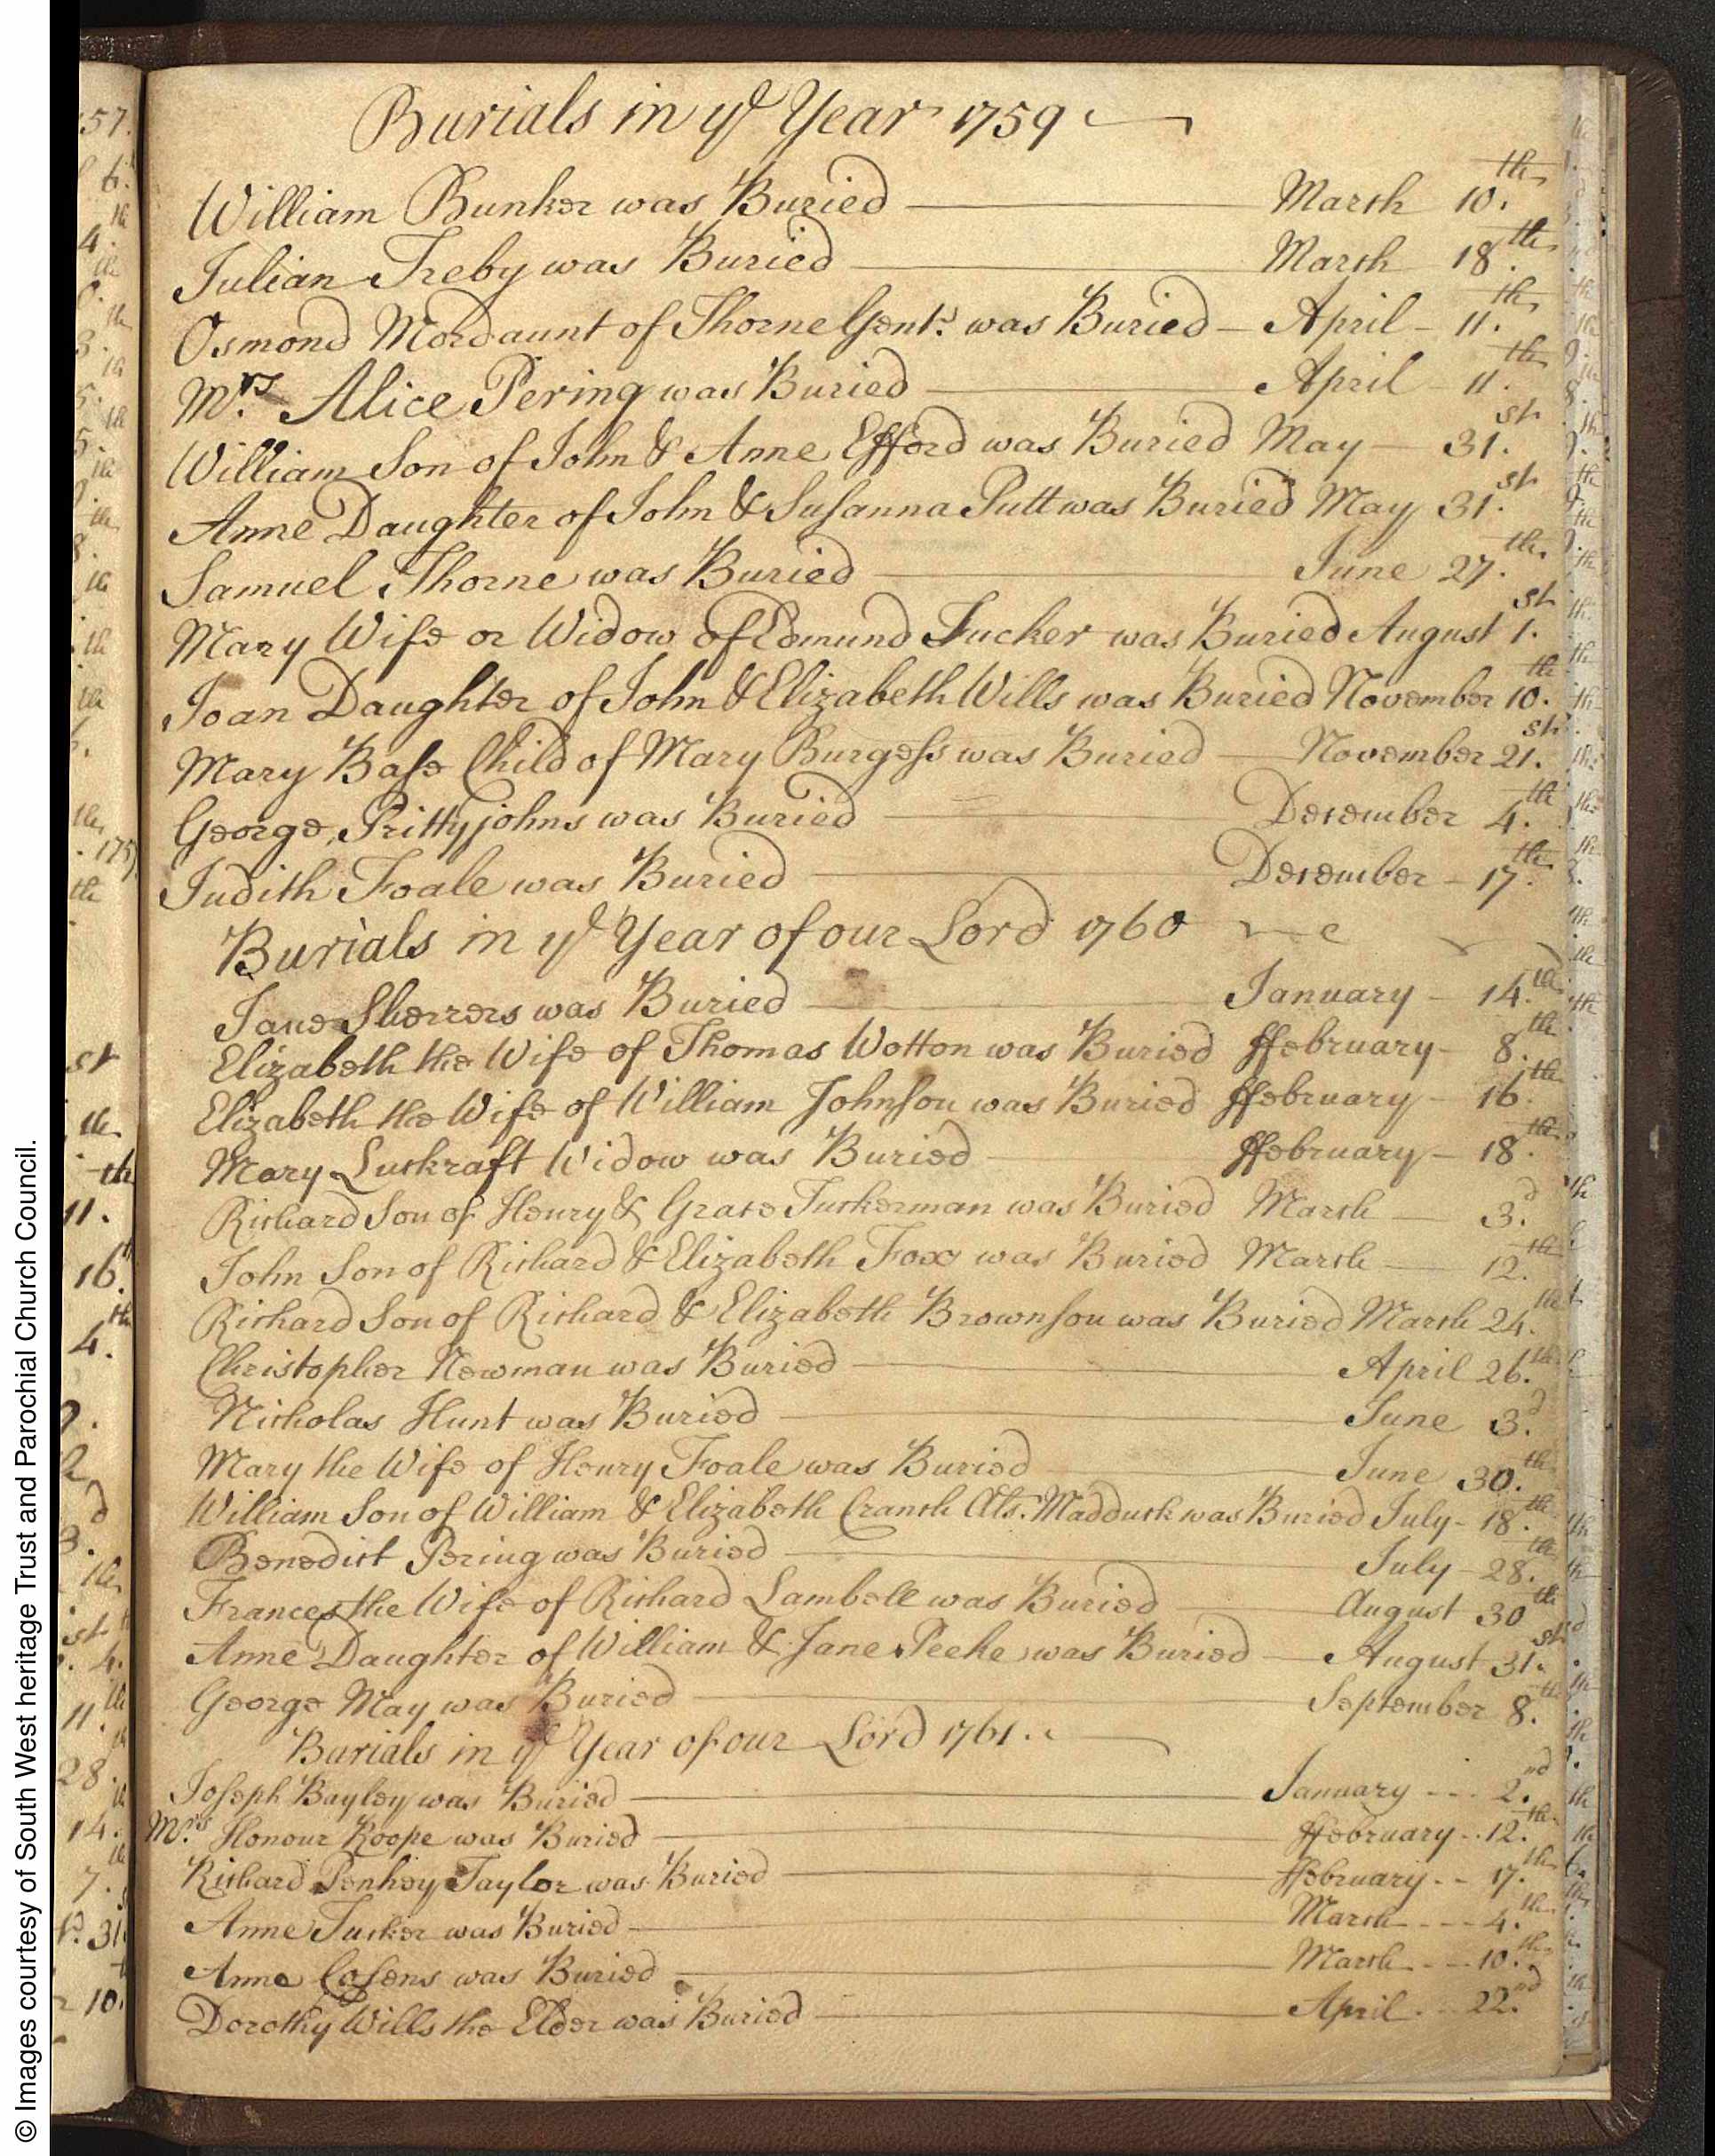 Burials in ye Year 1759
William Bunker was Buried March 10.th
Julian Treby was Buried March 18.th
Osmond Mordaunt of Thorne Gent: was Buried April 11.th
Mrs. Alice Pering was Buried April 11.th
William Son of John & Anne Efford was Buried May 31.st
Anne Daughter of John & Susanna Putt was Buried May 31.st
Samuel Thorne was Buried June 27.th
Mary Wife or Widow of Edmund Tucker was Buried August 1.st
Joan Daughter of John & Elizabeth Wills was Buried November 10.th
Mary Base Child of Mary Burgess was Buried November 21.st
George Prittyjohns was Buried December 4.th
Judith Foale was Buried December 17.th
Burials in ye Year of our Lord 1760
Jane Sherrers was Buried January 14.th
Elizabeth the Wife of Thomas Wotton was Buried ffebruary 8.th
Elizabeth the Wife of William Johnson was Buried ffebruary 16.th
Mary Luckraft Widow was Buried ffebruary 18.th
Richard Son of Henry & Grace Tuckerman was Buried March 3.d
John Son of Richard & Elizabeth Fox was Buried March 12.th
Richard Son of Richard & Elizabeth Brownson was Buried March 24.th
Christopher Newman was Buried April 26.th
Nicholas Hunt was Buried June 3.d
Mary the Wife of Henry Foale was Buried June 30.th
William Son of William & Elizabeth Cranch Als. Madduck was Buried July 18.th
Benedict Pering was Buried July 28.th
Frances the Wife of Richard Lambell was Buried August 30th
Anne Daughter of William & Jane Peeke was Buried August 31.st
George May was Buried September 8.th
Burials in ye Year of our Lord 1761.
Joseph Bayley was Buried January 2.nd
Mrs. Honour Roope was Buried ffebruary 12.th
Richard Penhey Taylor was Buried ffebruary 17.th
Anne Tucker was Buried March 4.th
Anne Cosens was Buried March 10.th
Dorothy Wills the Elder was Buried April 22.nd
© Images courtesy of South West heritage Trust and Parochial Church Council.